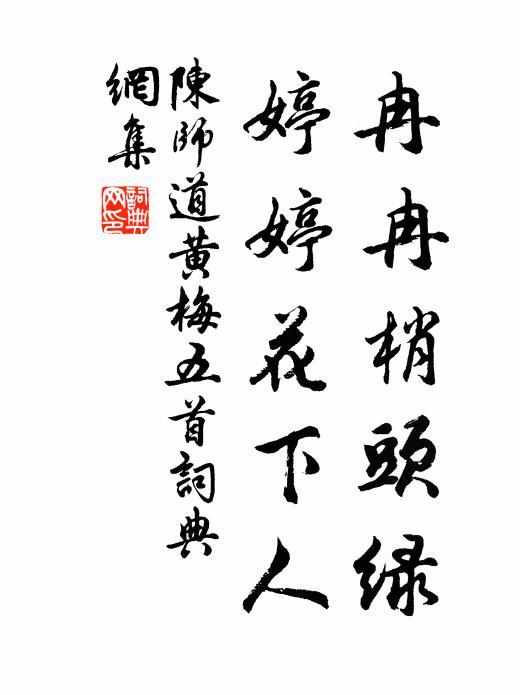 冉冉梢頭緑
婷婷花下人
陳師道黄梅五首詞典
網集
詞典
网印